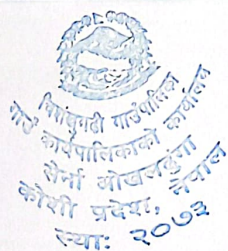 चिशंखुगढी गाउँपालिका
गाउँ कार्यपालिकाको कार्यालय
सेर्ना ओखलढुंगा
कोशी प्रदेश, नेपाल
स्था: २०७३